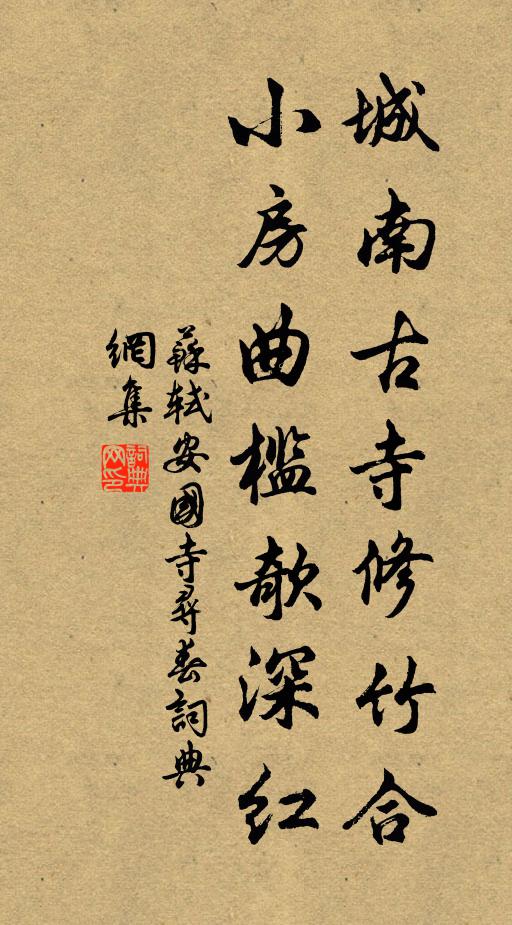 城南古寺修竹合
小房曲檻欹深红
蘇軾安國寺尋春詞典
網集
詞典网印